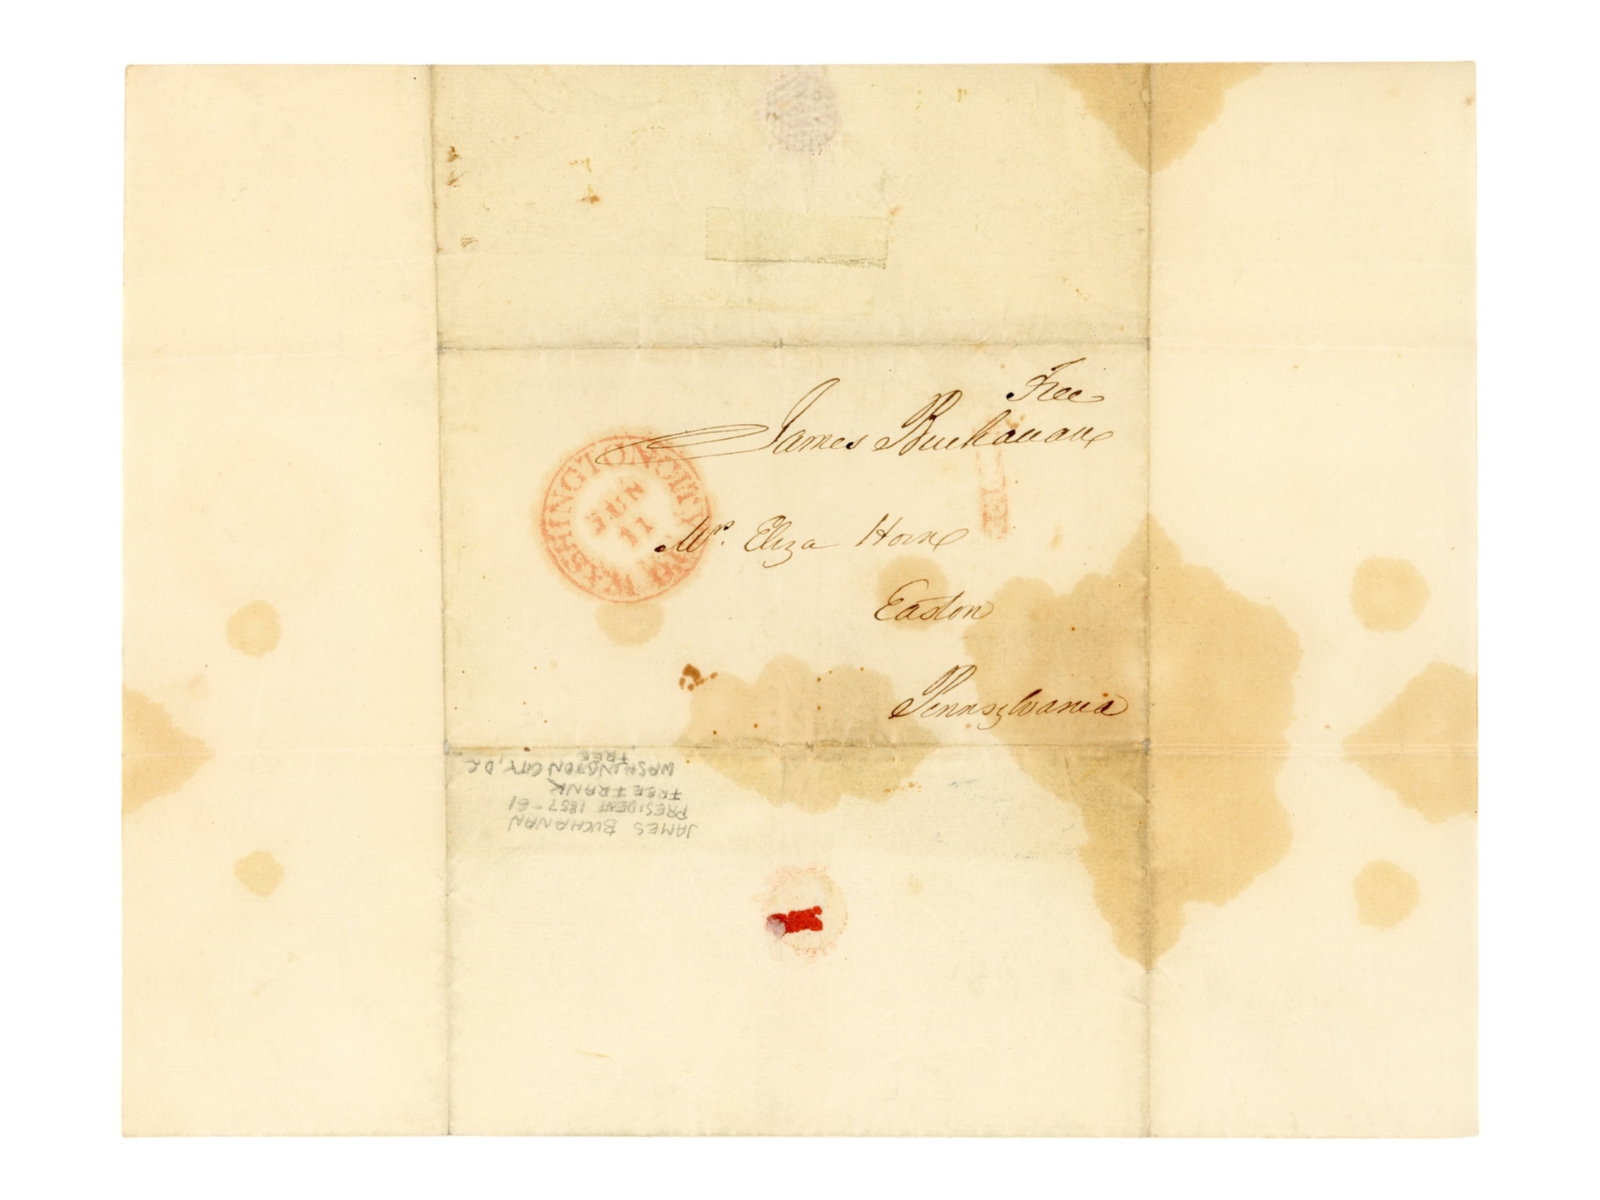 Free
James Buchanan
WASHINGTON CITY
JUN
11
Mrs. Eliza Horn
Easton
Pennsylvania
JAMES BUCHANAN
PRESIDENT 1857-61
FREE FRANK
WASHINGTON CITY, D.C.
FREE